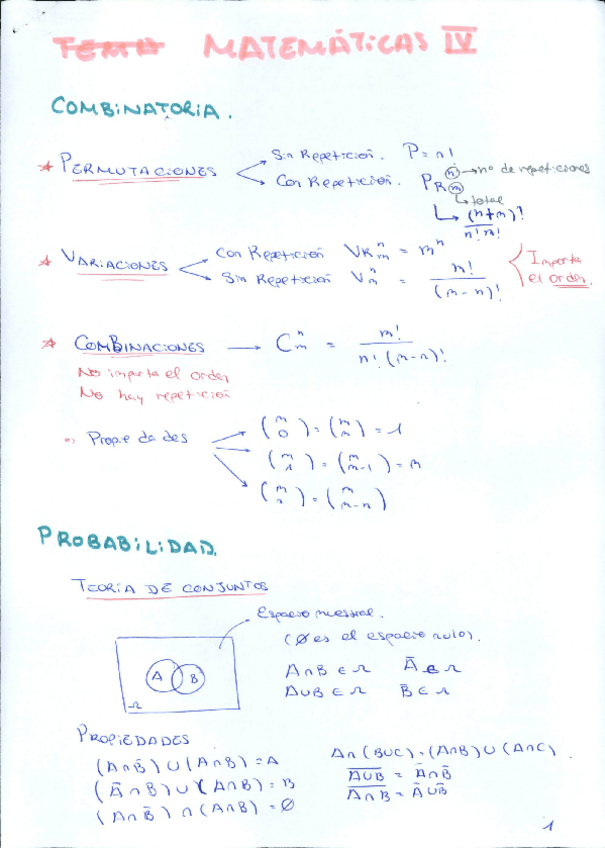 TEMA MATEMÁTICAS IV
COMBINATORIA.
* PERMUTACIONES
Sin Repetición. P = n!
Con Repetición. PR n m
→ nº de repeticiones
→ total
(n+m)!
n! n!
* VARIACIONES
Con Repetición VR m n = m^n
Sin Repetición V m n = m! / (m-n)!
Importa
el orden.
* COMBINACIONES → C m n = m! / n! (m-n)!
No importa el orden
No hay repetición
Propiedades
(m 0) = (m m) = 1
(m 1) = (m m-1) = m
(m n) = (m m-n)
PROBABILIDAD.
TEORÍA DE CONJUNTOS
Espacio muestral.
(Ø es el espacio nulo).
A B
Ω
A∩B ∈ Ω Ā ∈ Ω
A∪B ∈ Ω B̄ ∈ Ω
PROPIEDADES
(A∩B̄) ∪ (A∩B) = A
(Ā∩B) ∪ (A∩B) = B
(A∩B̄) ∩ (A∩B) = Ø
A∩(B∪C) = (A∩B) ∪ (A∩C).
A∪B = Ā∩B̄
A∩B = Ā∪B̄
1